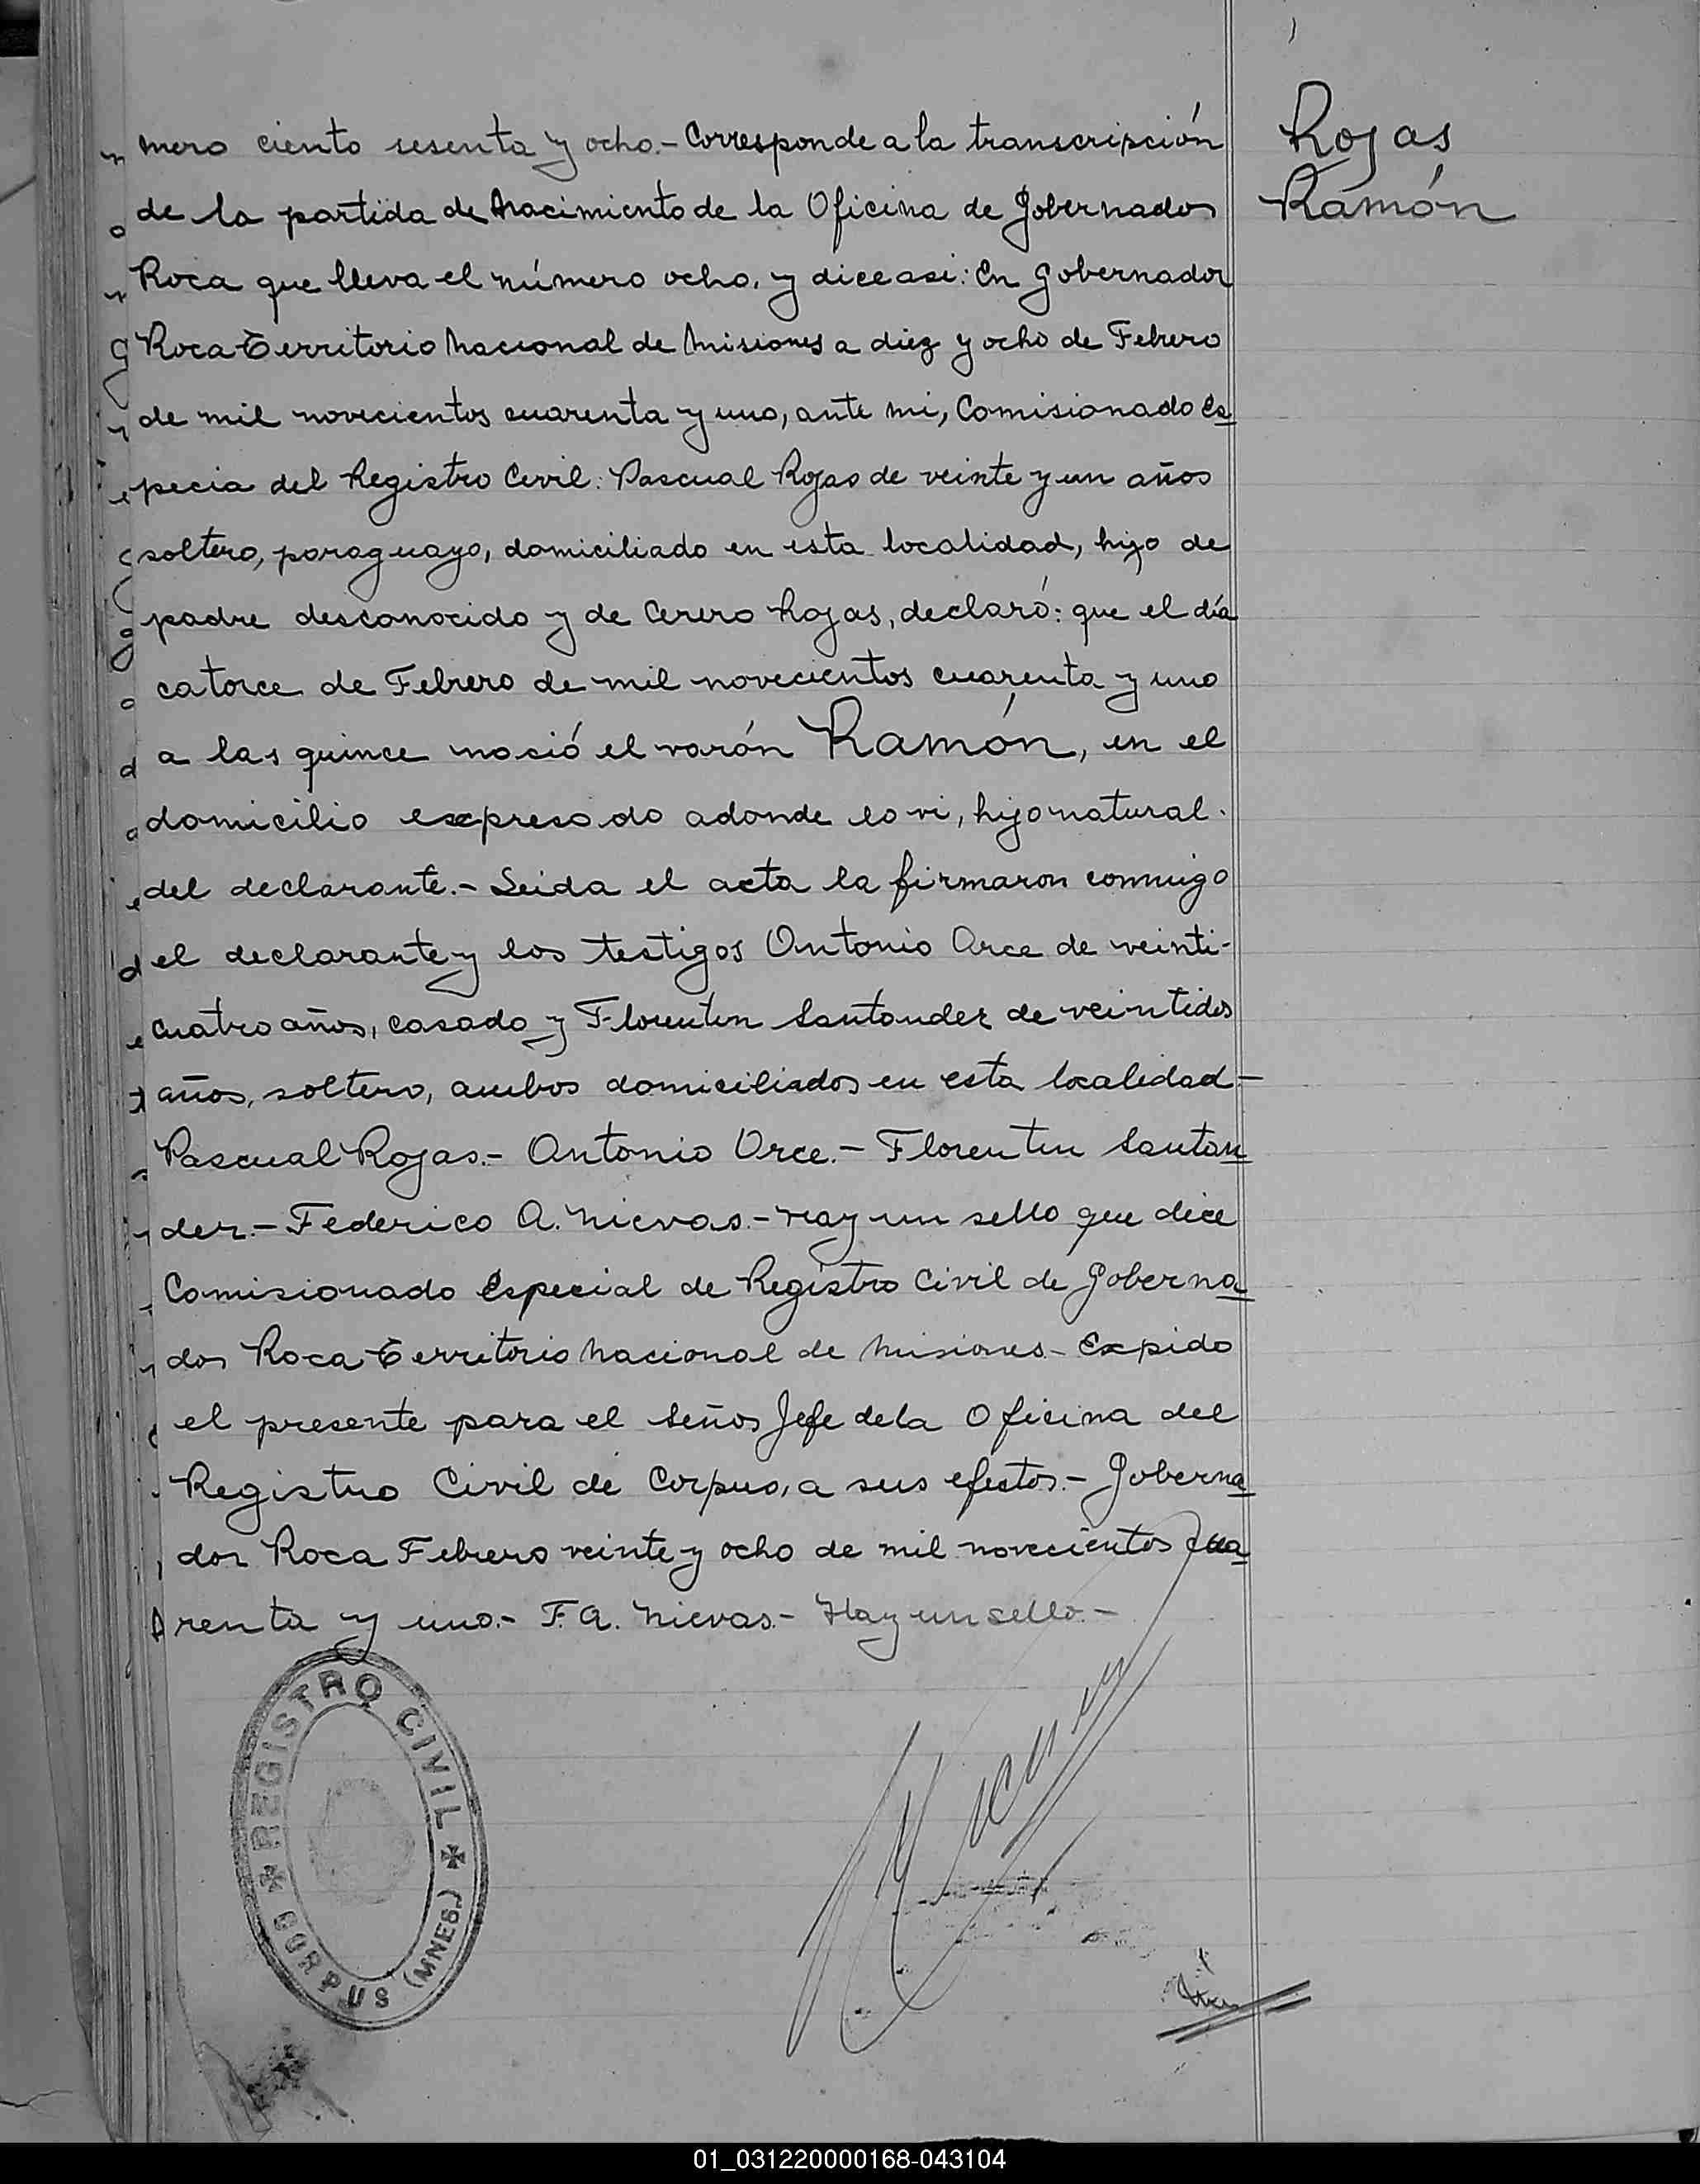 Rojas
Ramón
mero ciento sesenta y ocho.- Corresponde a la transcripción
de la partida de Nacimiento de la Oficina de Gobernador
Roca que lleva el número ocho, y dice asi: En Gobernador
Roca Territorio Nacional de Misiones a diez y ocho de Febrero
de mil novecientos cuarenta y uno, ante mi, Comisionado Es
pecia del Registro Civil: Pascual Rojas de veinte y un años
soltero, paraguayo, domiciliado en esta localidad, hijo de
padre desconocido y de Cerero Rojas, declaró: que el día
catorce de Febrero de mil novecientos cuarenta y uno
a las quince nació el varón Ramón, en el
domicilio expresado adonde lo vi, hijo natural.
del declarante.- Leida el acta la firmaron conmigo
el declarante y los testigos Antonio Arce de veinti-
cuatro años, casado y Florentin Santander de veintidos
años, soltero, ambos domiciliados en esta localidad-
Pascual Rojas.- Antonio Arce.- Florentin Santan
der.- Federico A. Nievas.- Hay un sello que dice
Comisionado Especial de Registro Civil de Goberna
dor Roca Territorio Nacional de Misiones- Expido
el presente para el Señor Jefe de la Oficina del
Registro Civil de Corpus, a sus efectos.- Goberna
dor Roca Febrero veinte y ocho de mil novecientos cua
renta y uno.- F. A. Nievas.- Hay un sello.-
REGISTRO CIVIL
CORPUS (MNES.)
01_031220000168-043104